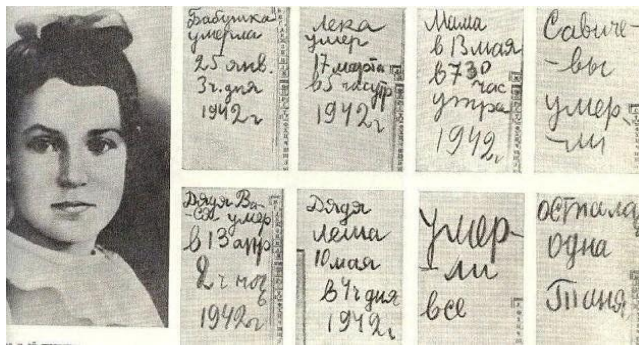 Бабушка
умерла
25 янв.
3ч. дня
1942г
Лека
умер
17 марта
в 5 час утр
1942г
Мама
в 13 мая
в 7 30
час
утра
1942г
Савиче-
-вы
умер
-ли
Дядя Ва-
-ся умер
в 13 апр
2 ч ноч
1942г
Дядя
Леша
10 мая
в 4ч дня
1942г
умер-
-ли
все
осталась
одна
Таня